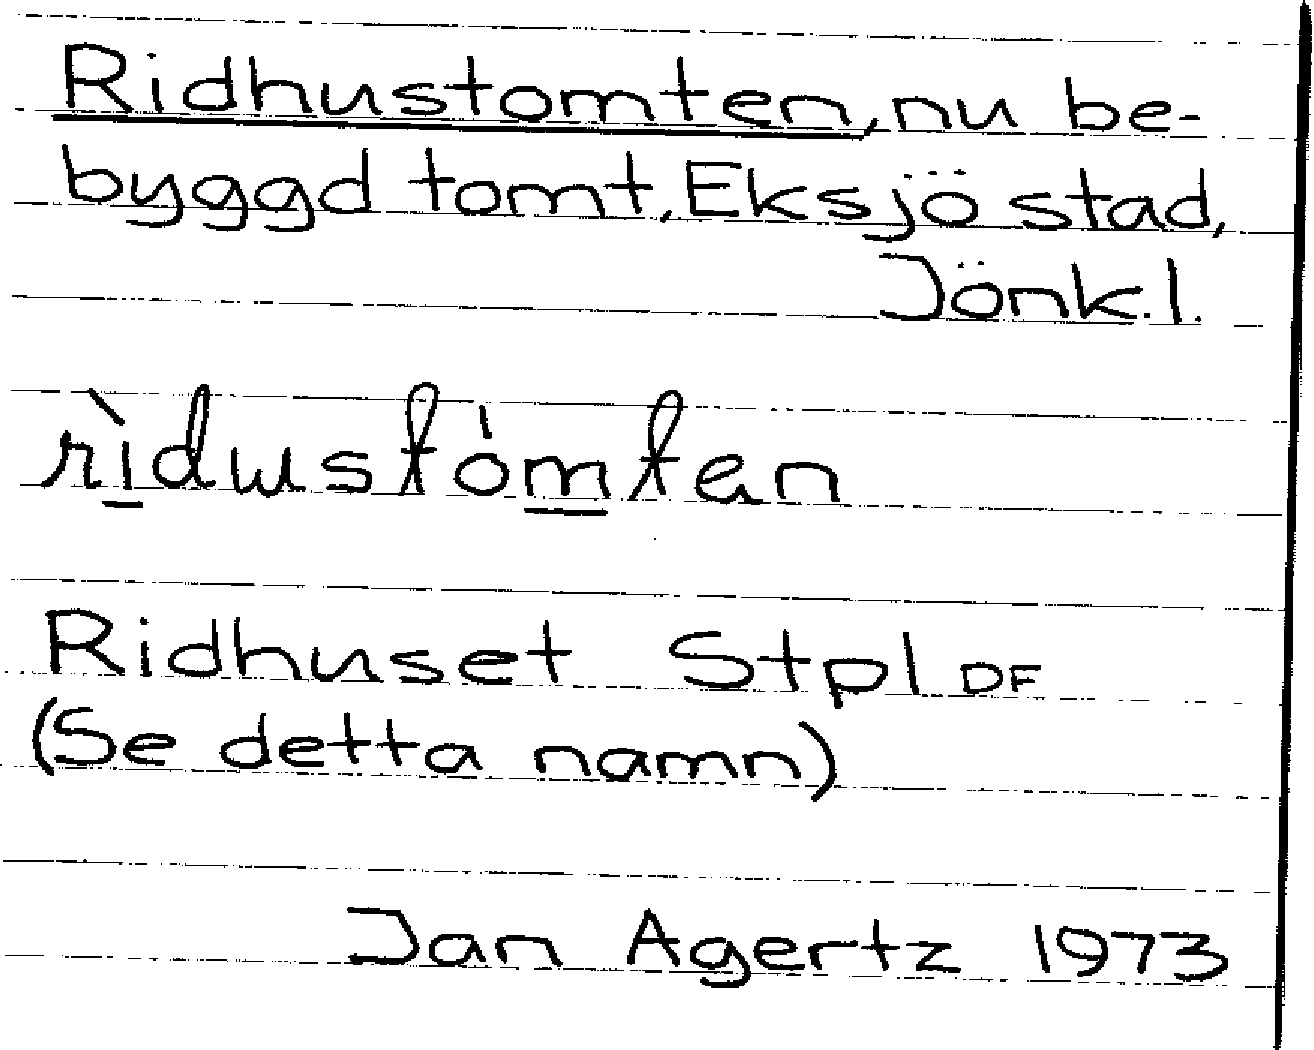 Ridhustomten, nu be-
byggd tomt, Eksjö stad,
Jönk.l.
rìdɯstómten
Ridhuset Stpl DF
(Se detta namn)
Jan Agertz 1973